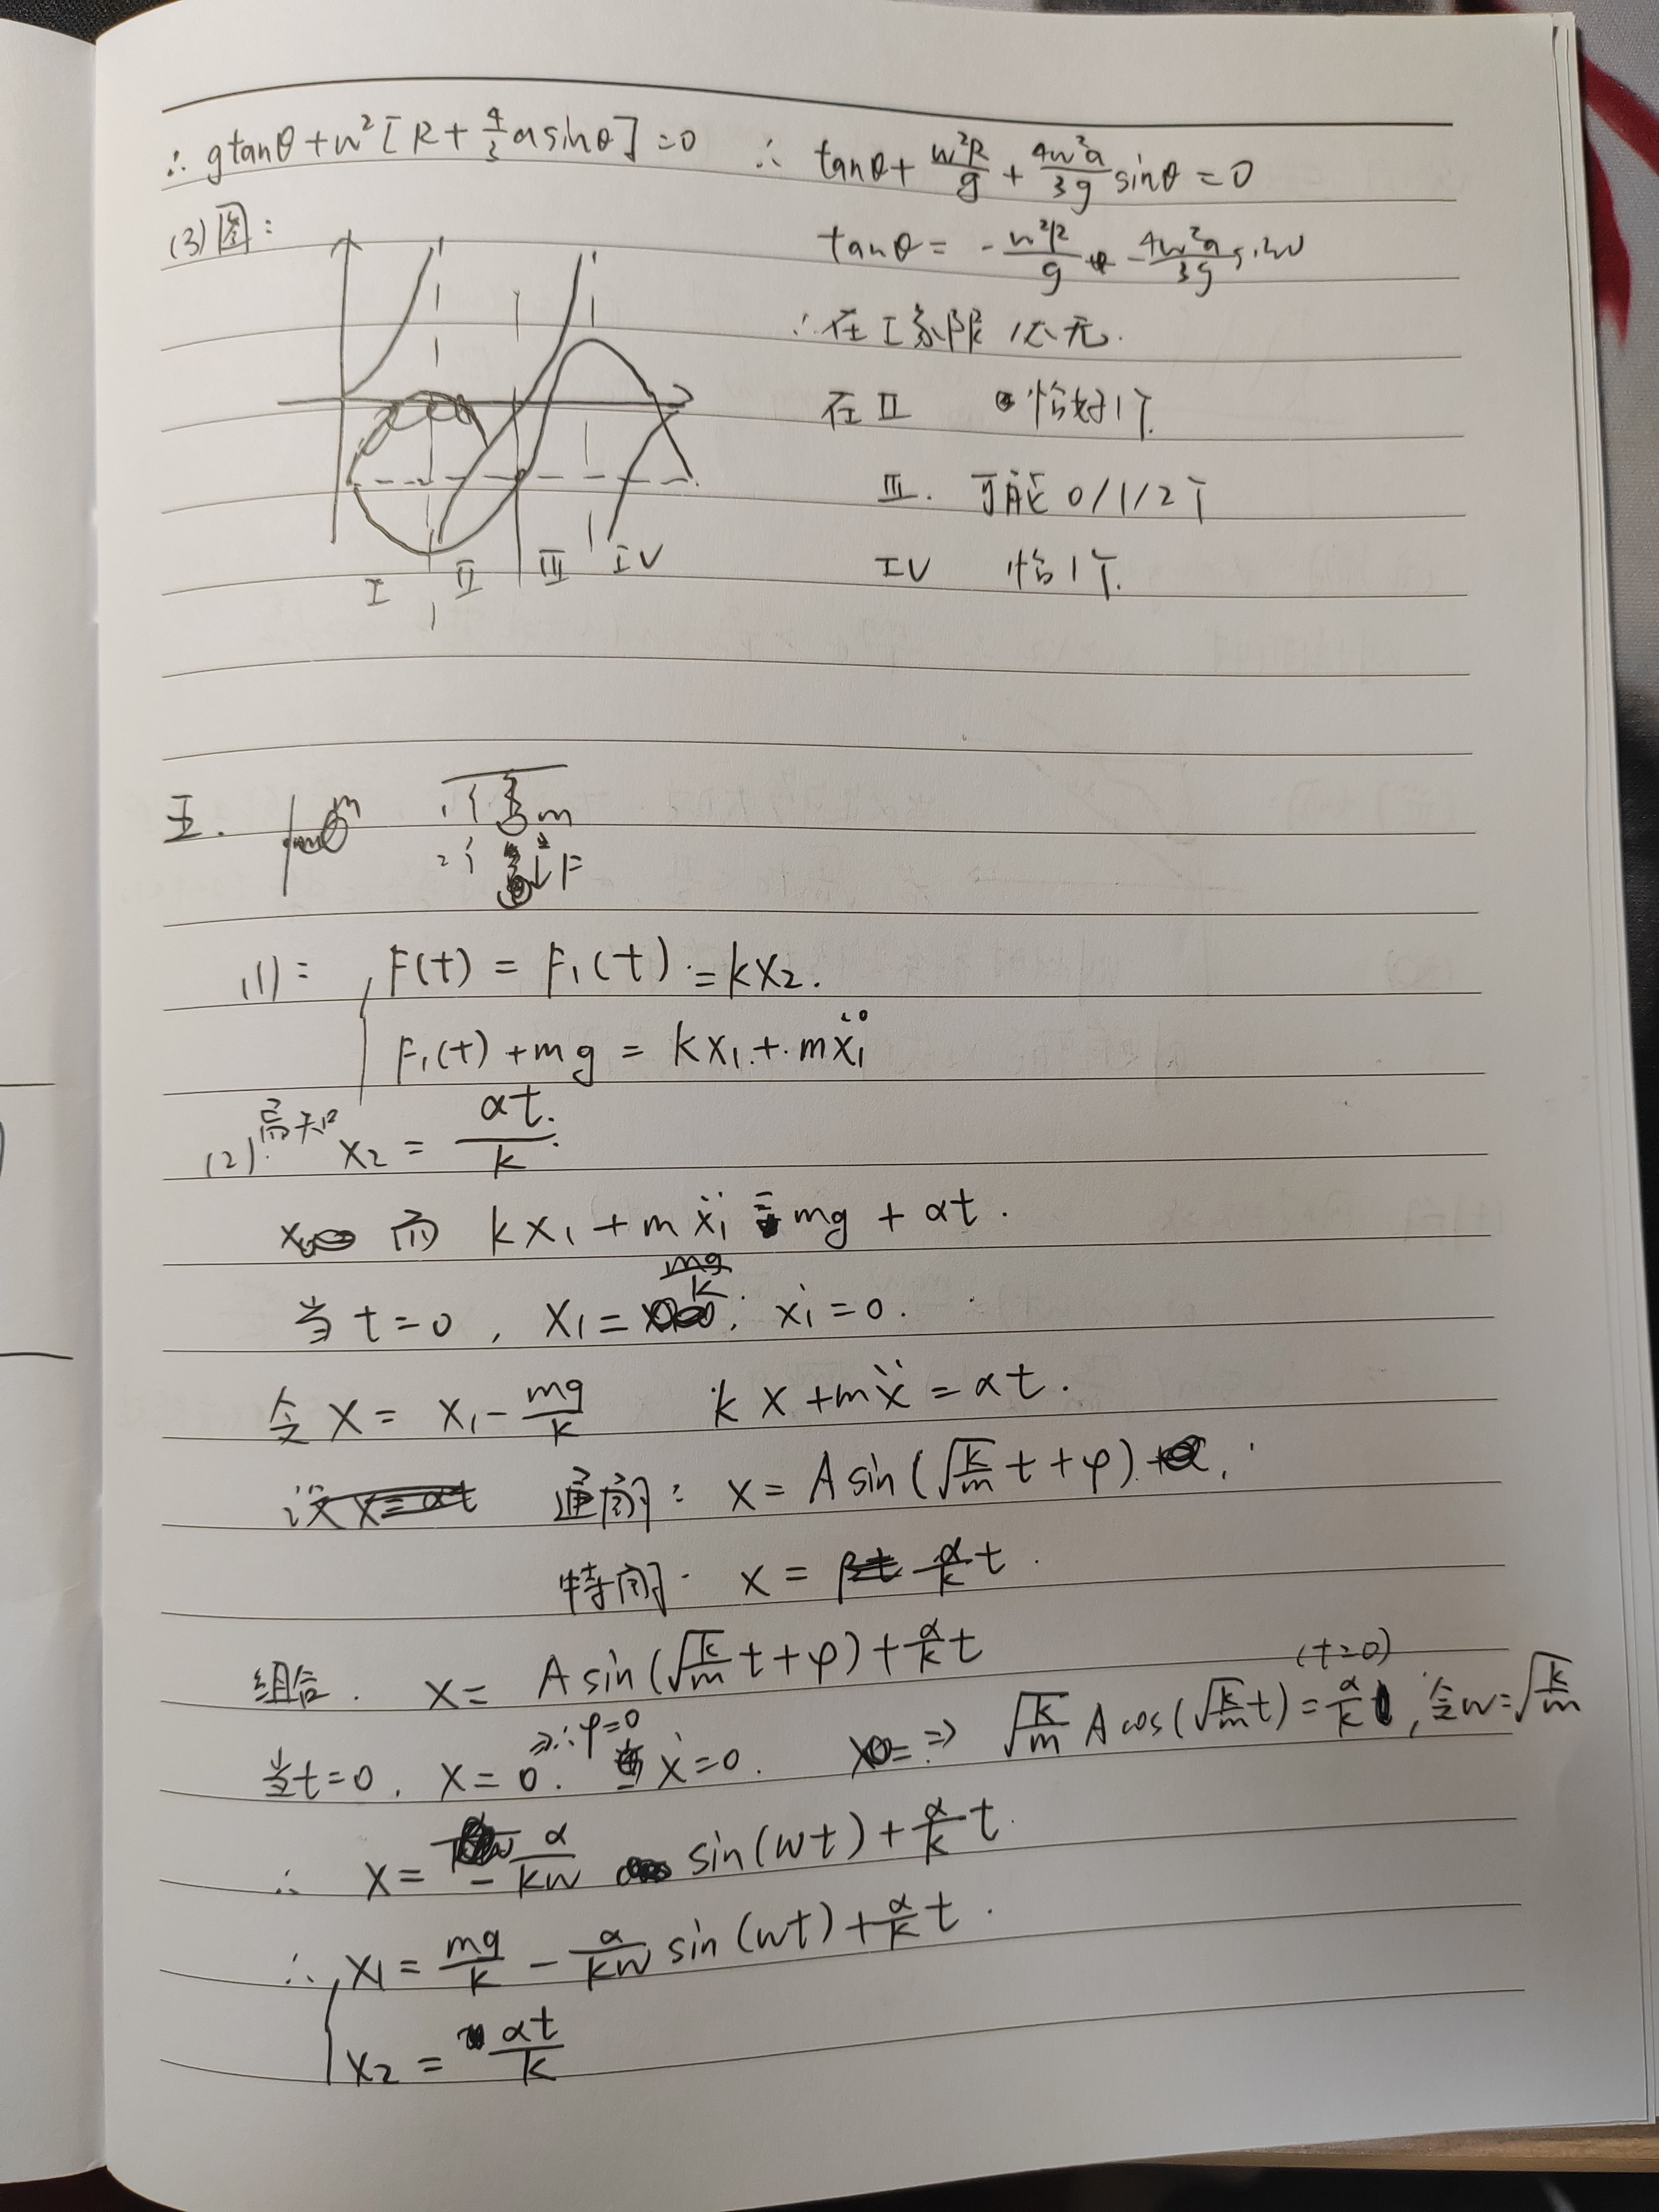 ∴ gtanθ + w²[R + 4/3 a sinθ] = 0 ∴ tanθ + w²R/g + 4w²a/3g sinθ = 0
(3) 图:
tanθ = - w²R/g - 4w²a/3g sinθ
∴ 在 I 象限 无.
在 II 恰好1个.
III. 可能 0/1/2个
IV 恰1个.
I II III IV
五. m
1 m
2 ↓F
(1): F(t) = F₁(t) = kx₂.
F₁(t) + mg = kx₁ + mẍ₁
(2) 易知 x₂ = αt/k
而 kx₁ + mẍ₁ = mg + αt.
当 t=0, x₁ = mg/k, ẋ₁ = 0.
令 x = x₁ - mg/k kx + mẍ = αt.
通解: x = A sin(√(k/m) t + φ)
特解. x = α/k t.
组合. x = A sin(√(k/m) t + φ) + α/k t
当t=0, x=0. ⇒∴φ=0 ẋ=0. ⇒ √(k/m) A cos(√(k/m) t) = α/k (t=0), 令w=√(k/m)
∴ x = - α/kw sin(wt) + α/k t.
∴ x₁ = mg/k - α/kw sin(wt) + α/k t.
x₂ = αt/k